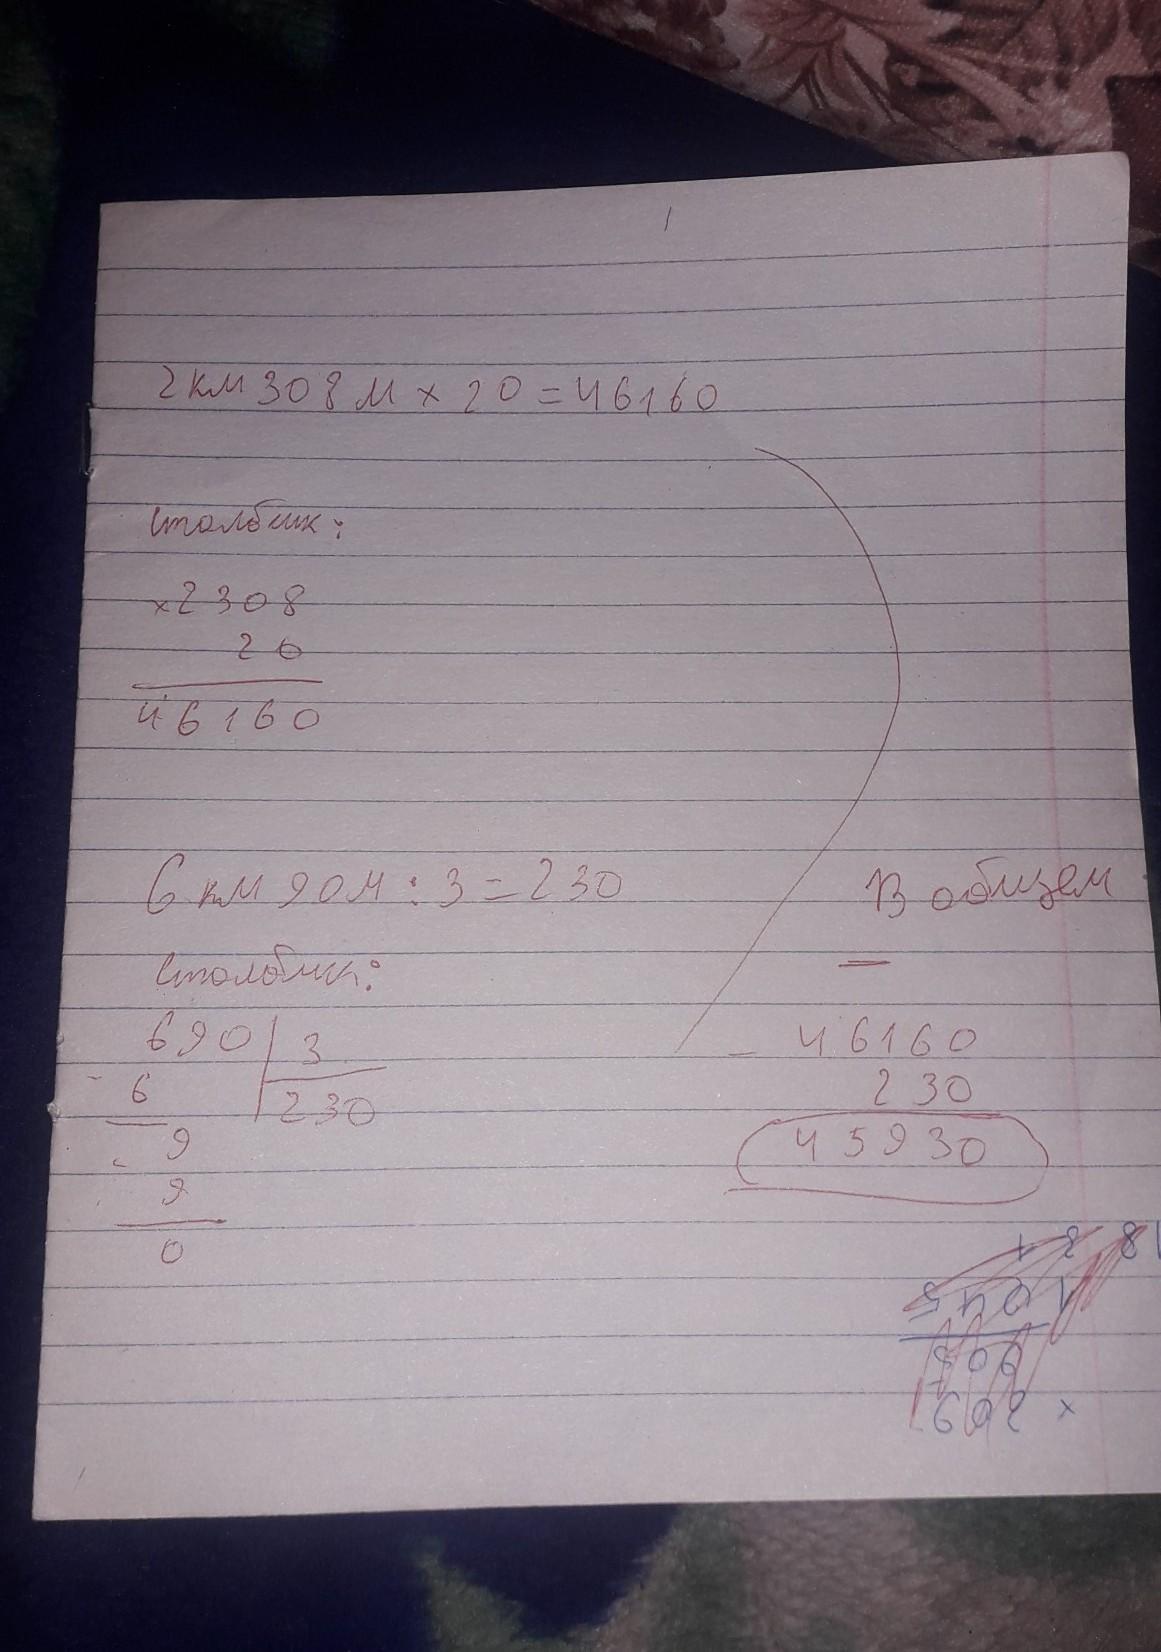 2 км 308 м × 20 = 46160
столбик:
×2308
20
46160
6 км 90 м : 3 = 230
столбик:
690 3
- 6 230
9
- 9
0
В общем
—
- 46160
230
45930